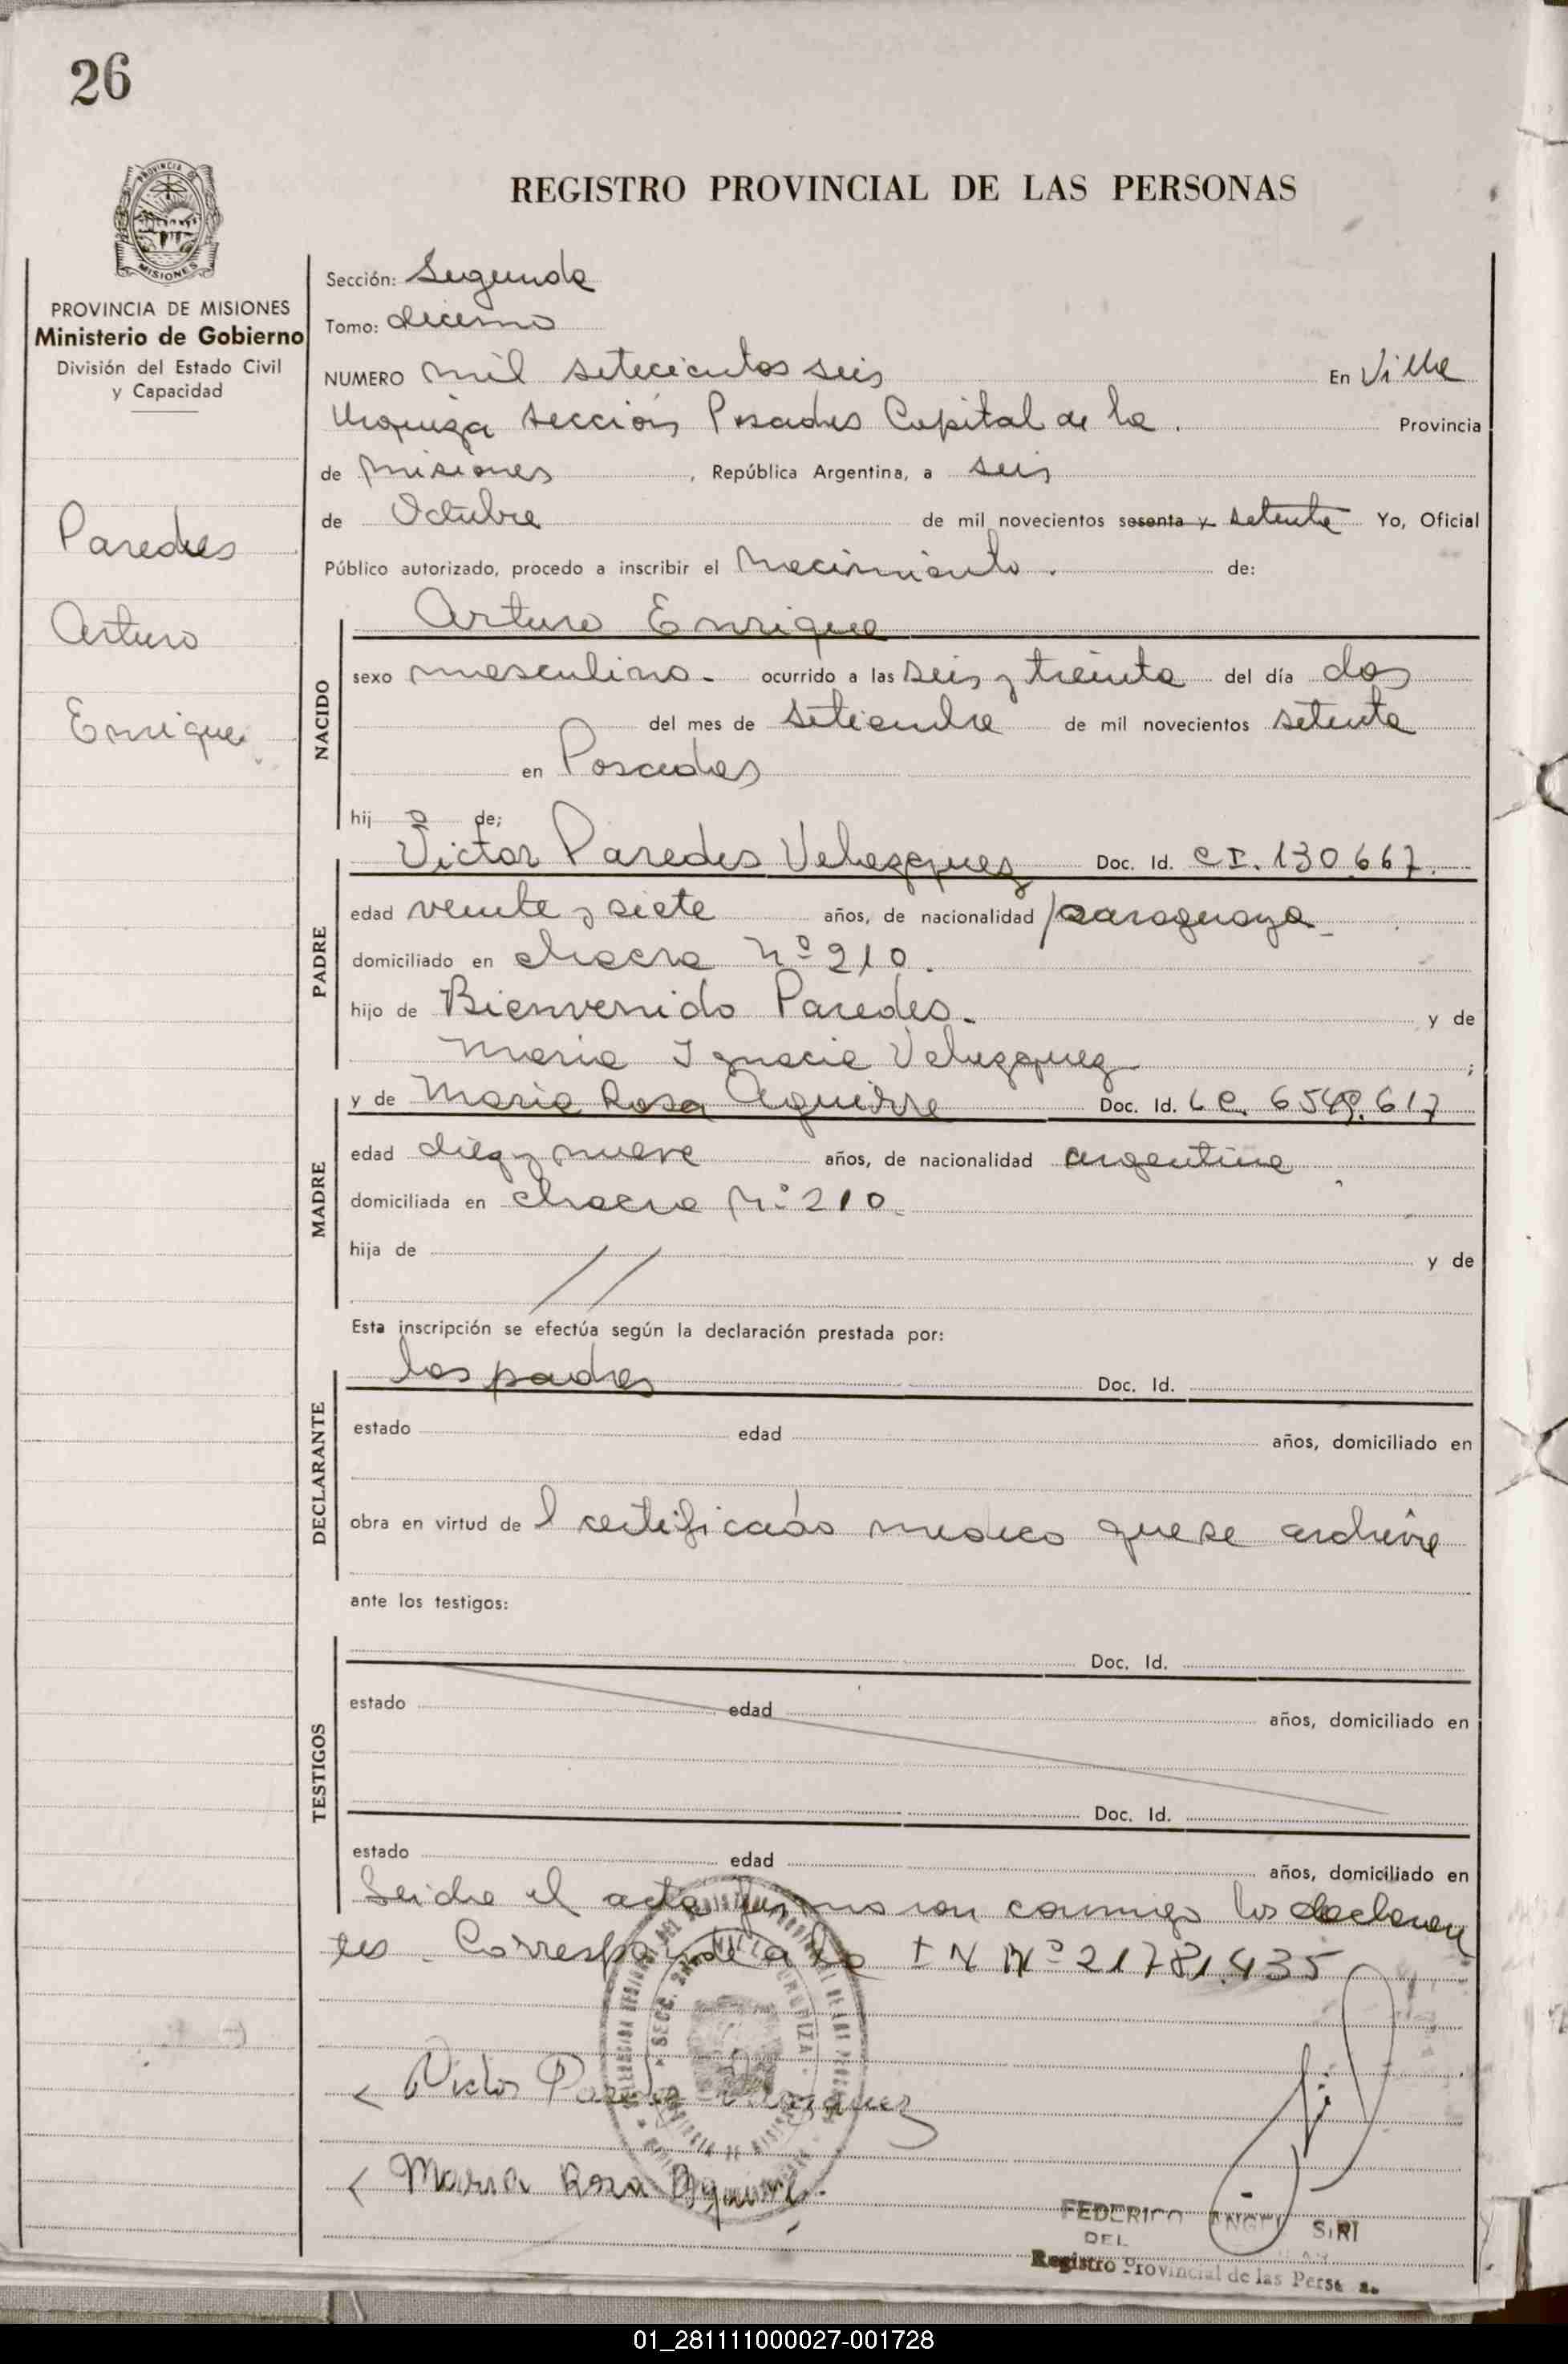 26
REGISTRO PROVINCIAL DE LAS PERSONAS
PROVINCIA DE
MISIONES
PROVINCIA DE MISIONES
Ministerio de Gobierno
División del Estado Civil
y Capacidad
Paredes
Arturo
Enrique
Sección: Segunda
Tomo: decimo
NUMERO mil setecientos seis En Villa
Urquiza sección Posadas Capital de la . Provincia
de Misiones , República Argentina, a seis
de Octubre de mil novecientos sesenta y setenta Yo, Oficial
Público autorizado, procedo a inscribir el nacimiento . de:
Arturo Enrique
NACIDO
sexo masculino - ocurrido a las seis y treinta del día dos
del mes de setiembre de mil novecientos setenta
en Posadas
hij o de;
Victor Paredes Velazquez Doc. Id. C I. 130.667.
PADRE
edad veinte y siete años, de nacionalidad paraguaya
domiciliado en chacra Nº 210.
hijo de Bienvenido Paredes - y de
Maria Ignacia Velazquez ;
y de Maria Rosa Aguirre Doc. Id. L C. 6549.617
MADRE
edad diez y nueve años, de nacionalidad argentina
domiciliada en chacra Nº 210.
hija de // y de
Esta inscripción se efectúa según la declaración prestada por:
los padres Doc. Id.
DECLARANTE
estado edad años, domiciliado en
obra en virtud de l certificado medico que se archiva
ante los testigos:
TESTIGOS
Doc. Id.
estado edad años, domiciliado en
Doc. Id.
estado edad años, domiciliado en
Leida el acta firmaron conmigo los declaran
tes - Corresponde a la Nº 21781.435
SECC. 2da. VILLA URQUIZA
Victor Paredes Velazquez
Maria Rosa Aguirre.
FEDERICO ANGEL SIRI
DEL
Registro Provincial de las Pers
01_281111000027-001728